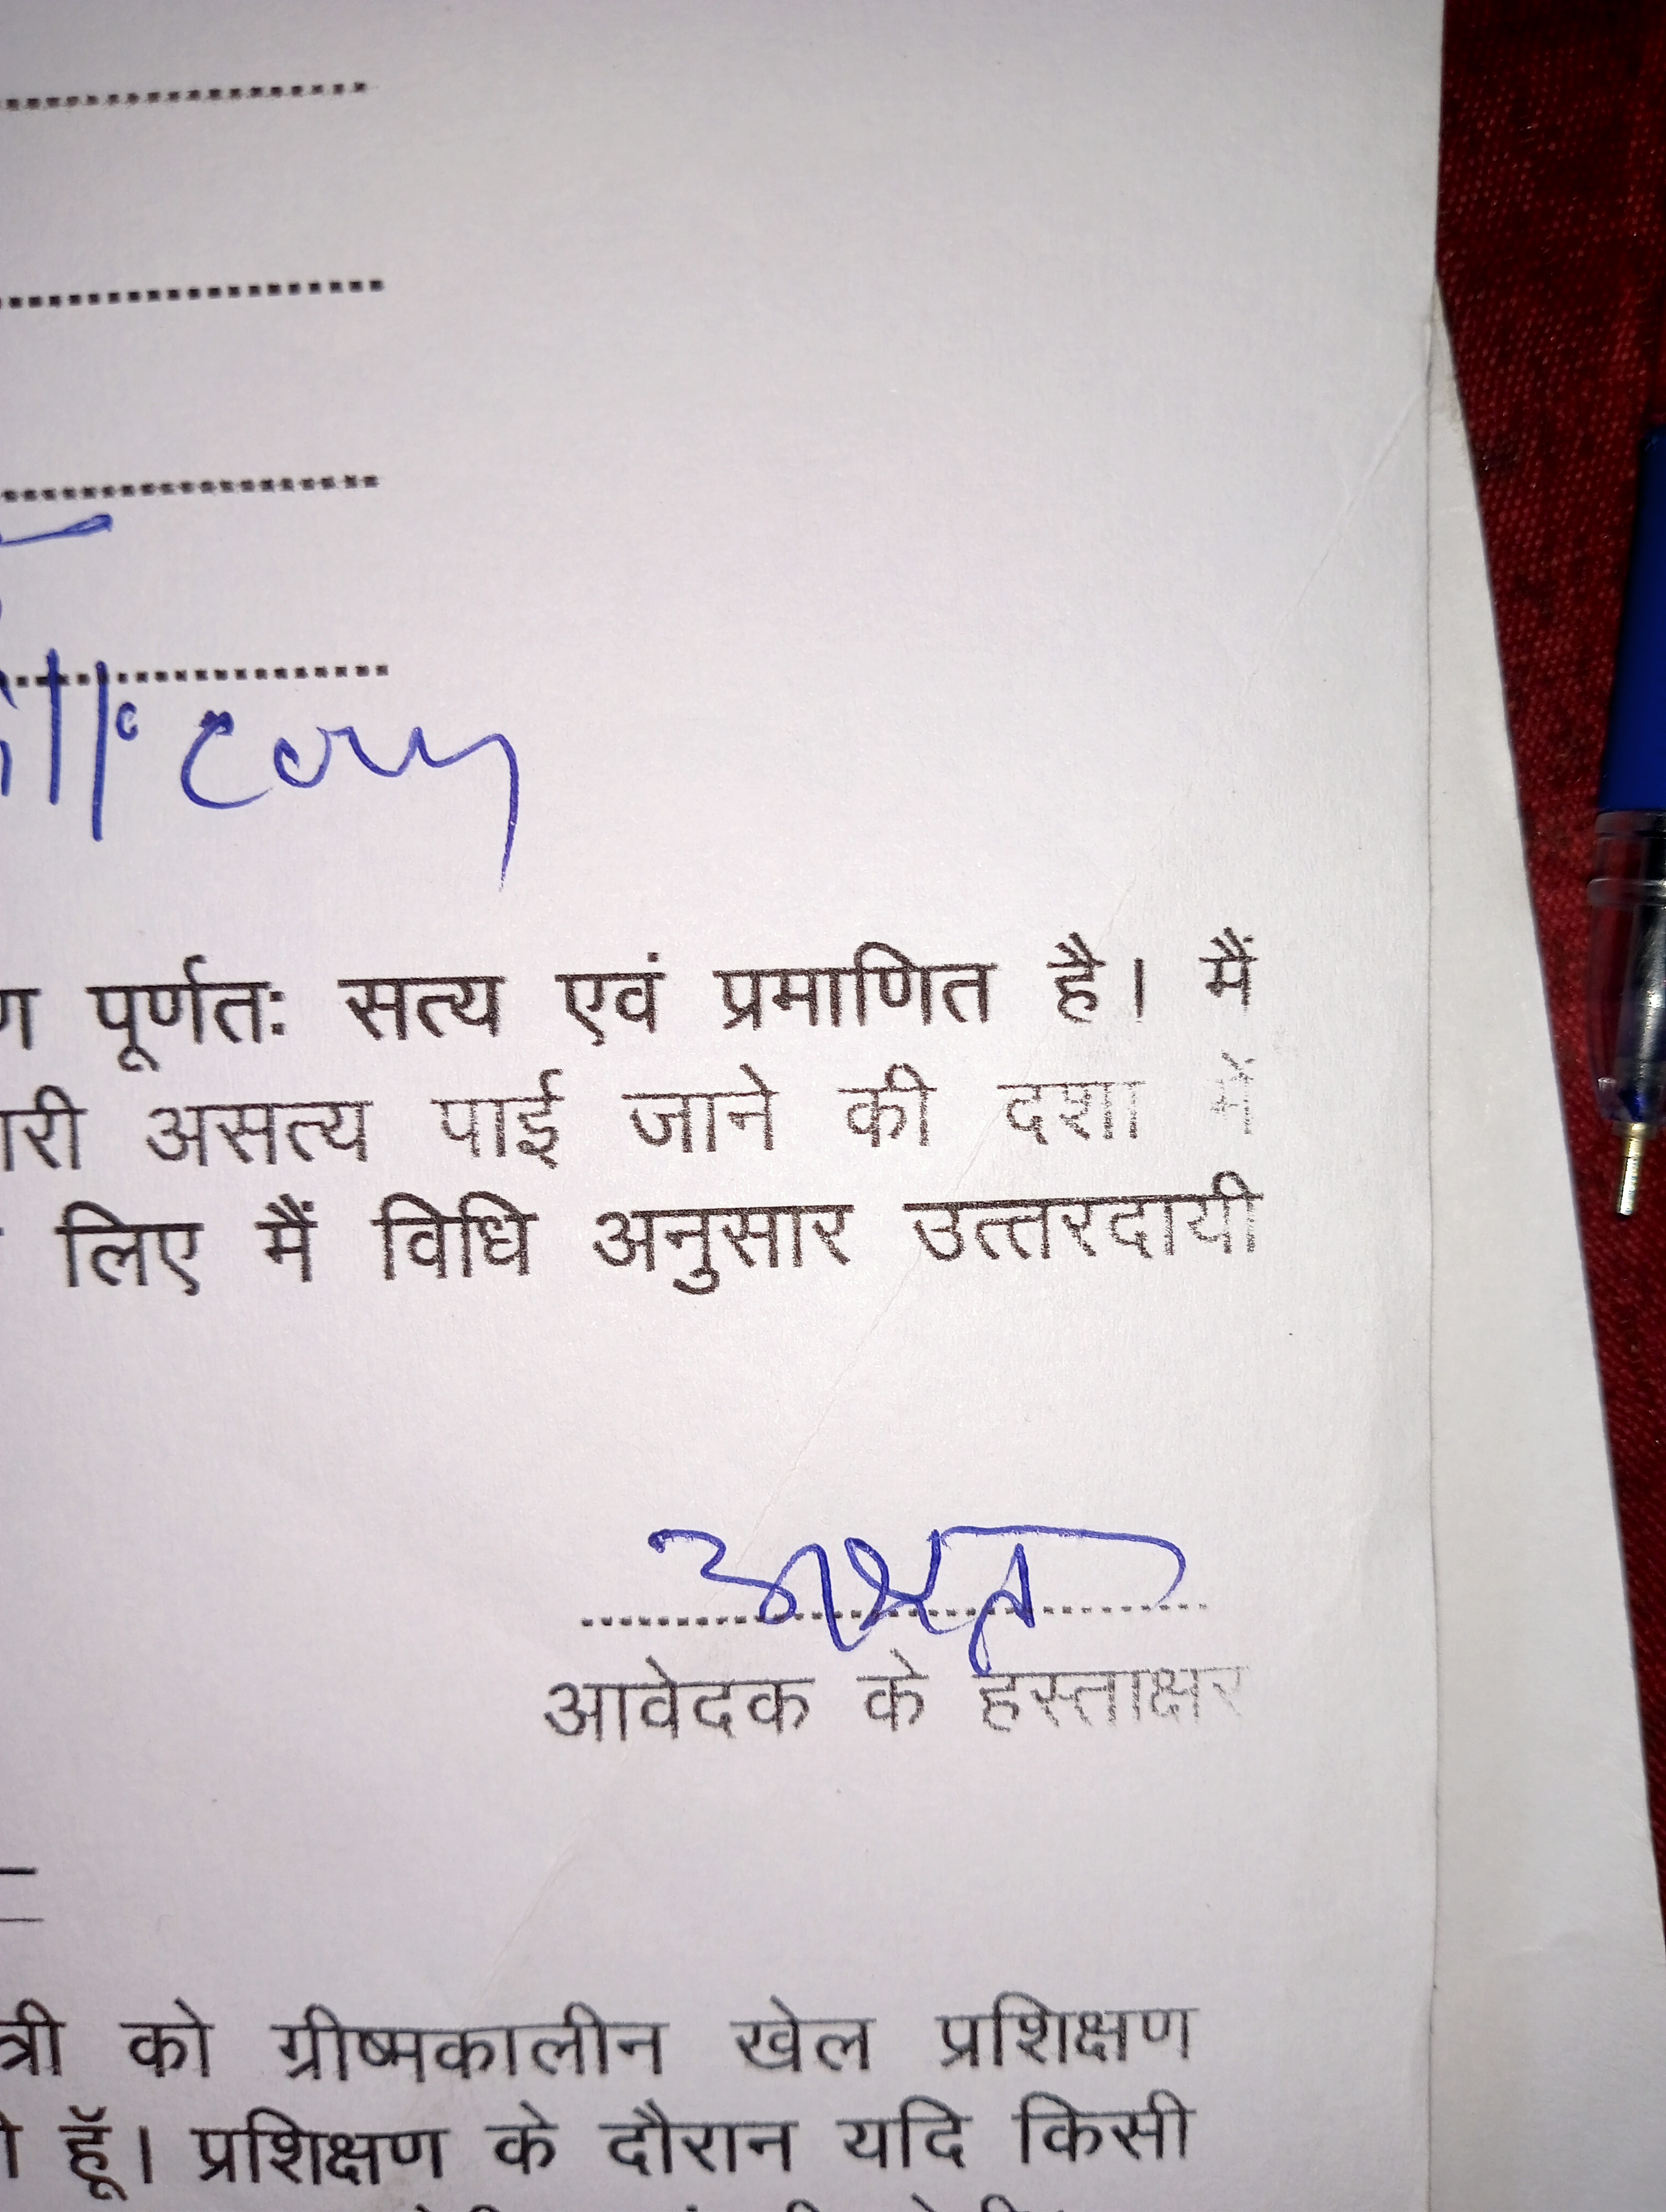 ण पूर्णतः सत्य एवं प्रमाणित है। मैं
ारी असत्य पाई जाने की दशा में
लिए मैं विधि अनुसार उत्तरदायी
अक्षत
आवेदक के हस्ताक्षर
त्री को ग्रीष्मकालीन खेल प्रशिक्षण
हूॅं। प्रशिक्षण के दौरान यदि किसी